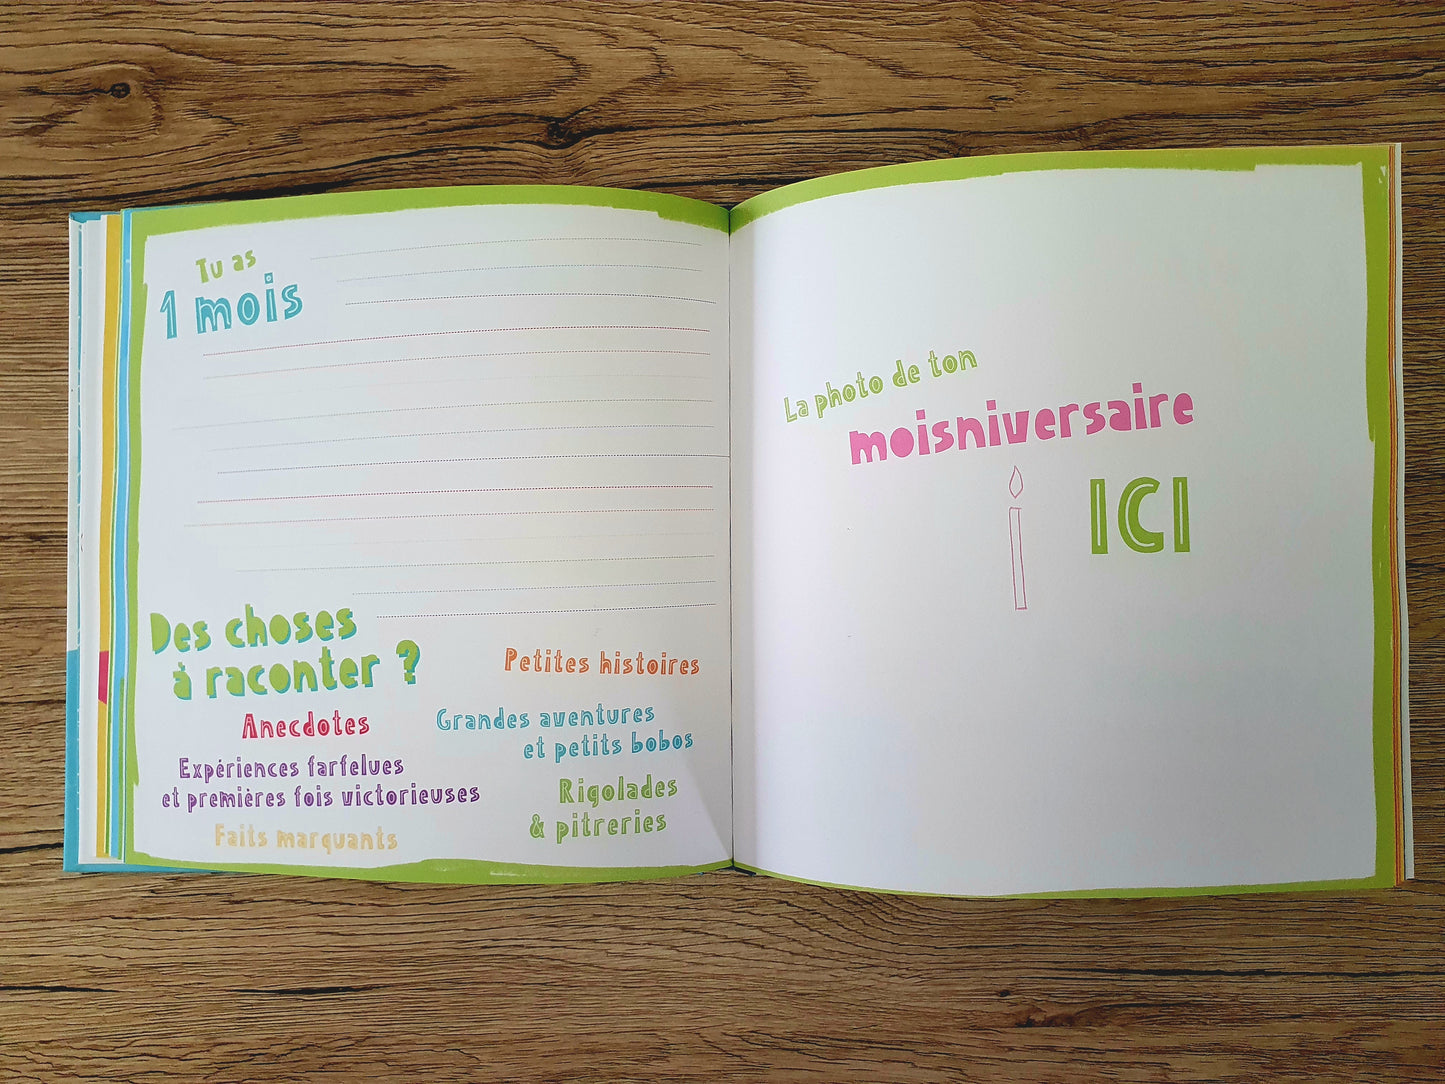 Tu as
1 mois
Des choses
à raconter ?
Petites histoires
Anecdotes
Grandes aventures
et petits bobos
Expériences farfelues
et premières fois victorieuses
Rigolades
& pitreries
Faits marquants
La photo de ton
moisniversaire
ICI